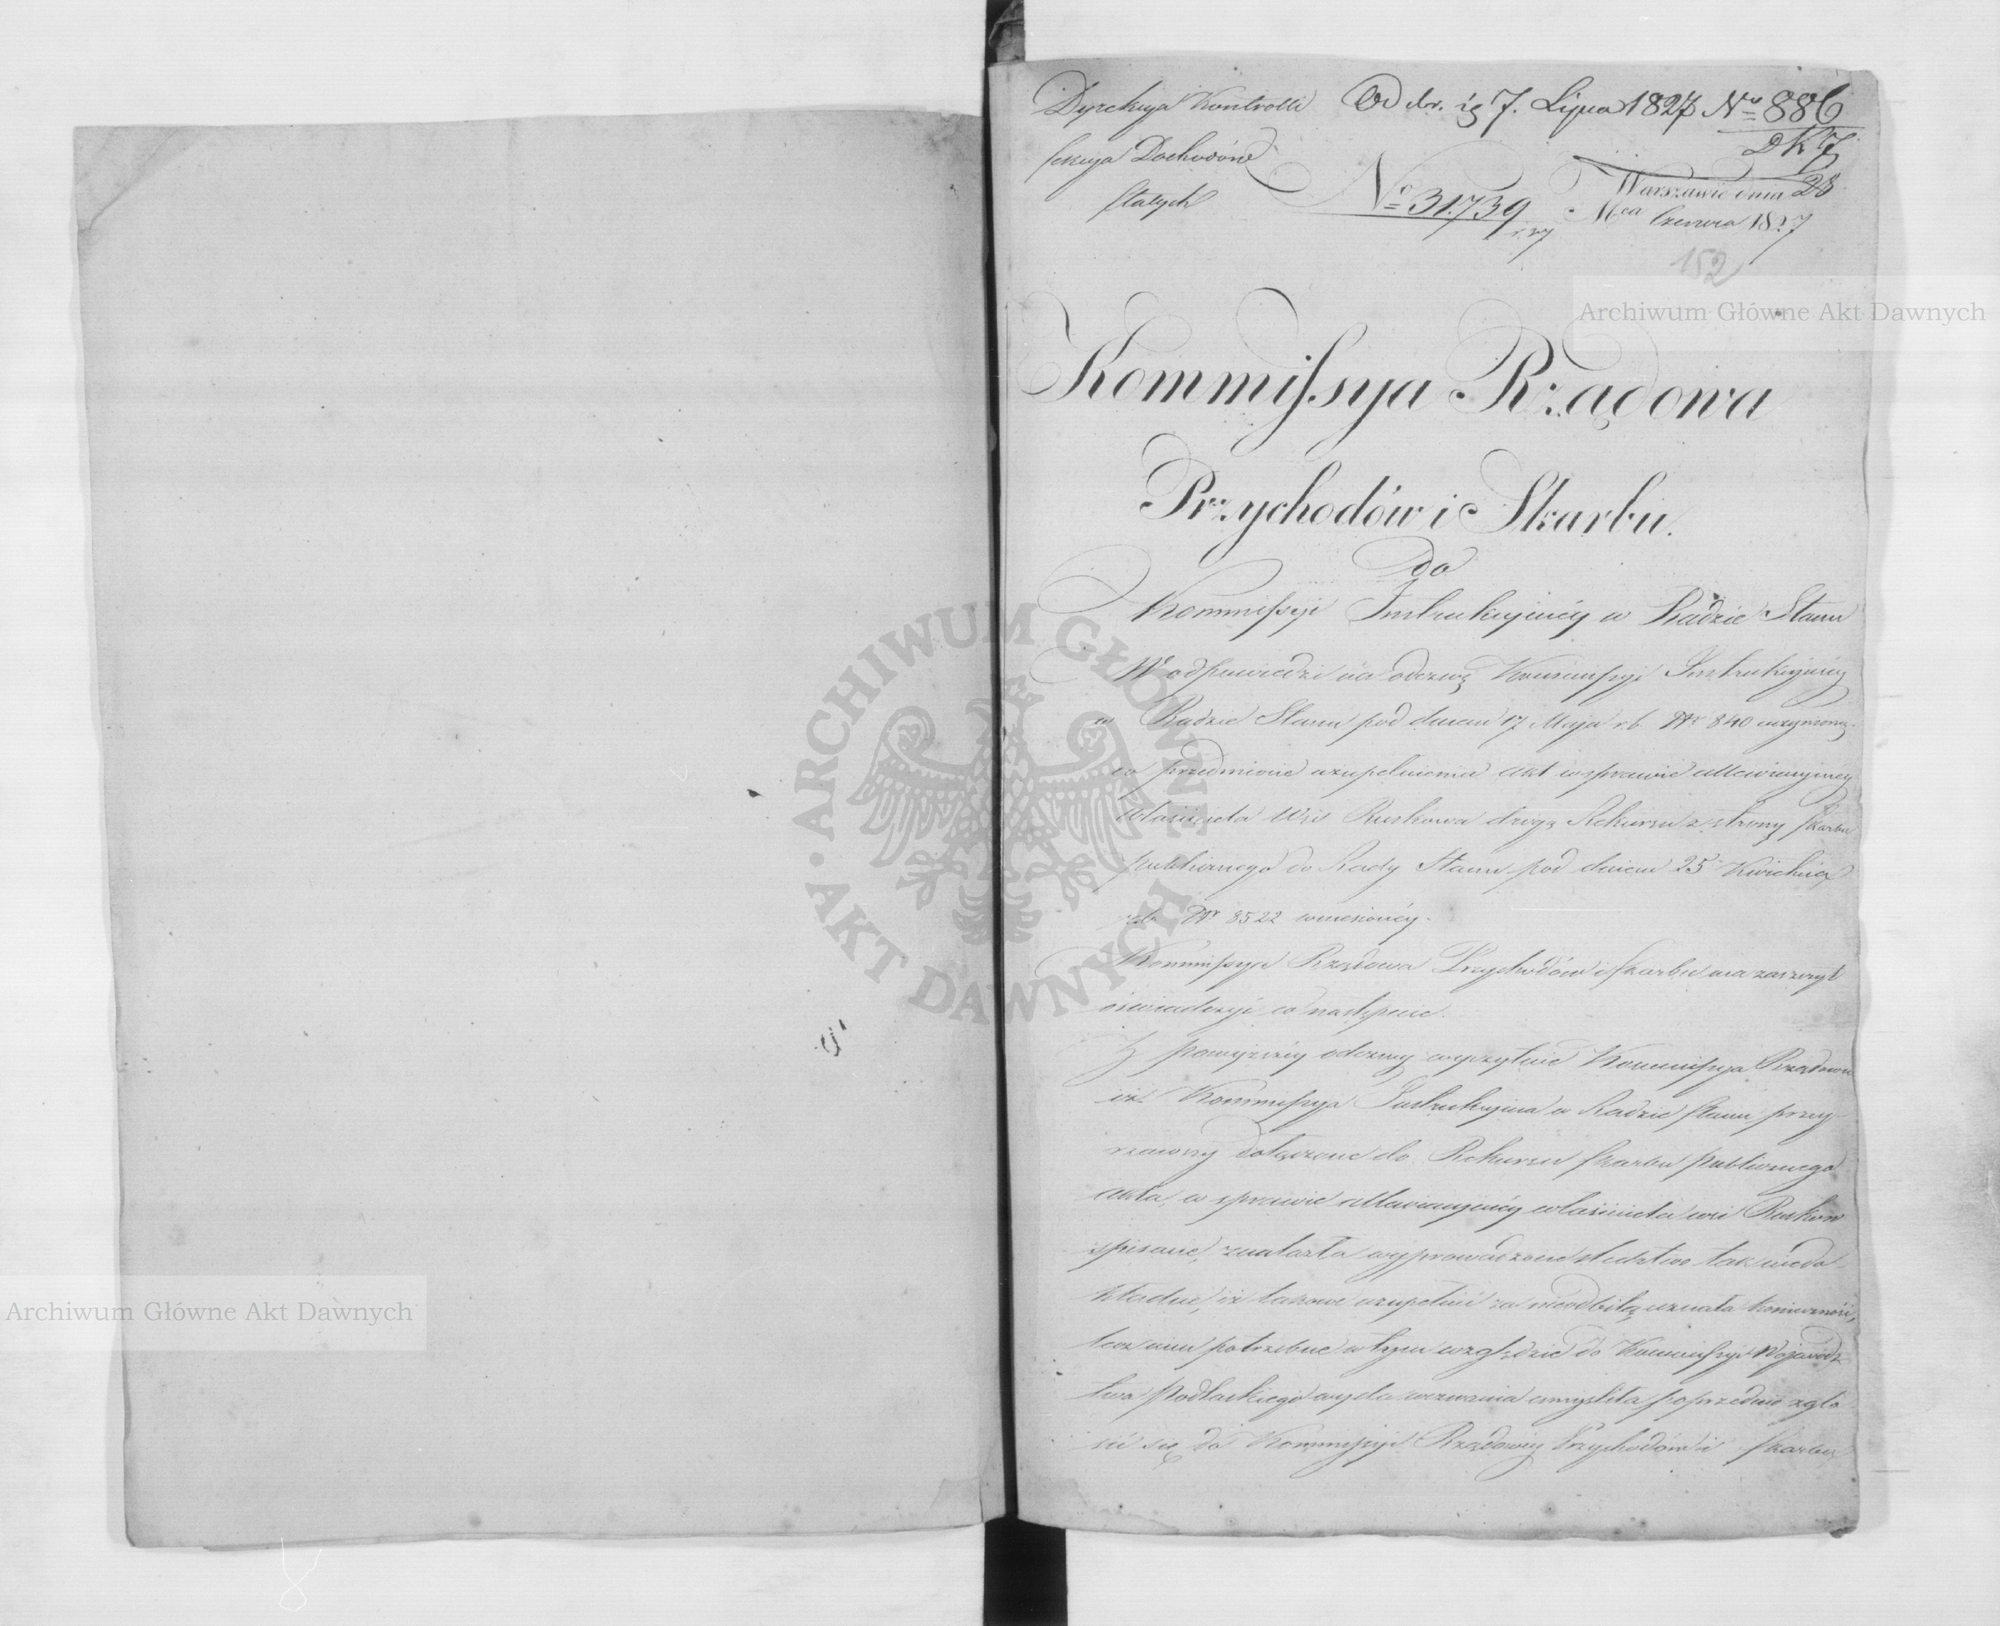 Dyrekcya Kontrolli
Sekcya Dochodów
Stałych
Odebr. 7. Lipca 1827 No 886
DK7
No 31739
Warszawie dnia 28
Mca Czerwca 1827
152
Kommissya Rządowa
Przychodów i Skarbu.
do
Kommissyi Instrukcyinéy w Radzie Stanu
W odpowiedzi na odezwę Kommissyi Instrukcyinéy
w Radzie Stanu pod dniem 17 Maja r.b. Nr 840 uczynioną
w przedmiocie uzupełnienia akt w sprawie
właściciela Wsi Ruskowa drogą Rekursu z strony Skarbu
publicznego do Rady Stanu pod dniem 25 Kwietnia
r.b. Nr 8522 wniesionéy.
Kommissya Rządowa Przychodów i Skarbu ma zaszczyt
oświadczyć co następuie.
Z powyższéy odezwy wyczytuie Kommissya Rządowa
iż Kommissya Instrukcyina w Radzie Stanu przey-
rzawszy dołączone do Rekursu Skarbu publicznego
akta, w sprawie właściciela wsi Ruskow
spisane, znalazła wyprowadzone śledztwo tak niedo
kładne, iż takowe uzupełnić za nieodbitą uznała konieczność,
lecz nim potrzebne w tym względzie do Kommissyi Wojewódz
twa Podlaskiego wyda wezwania umyśliła poprzednio zgło
sić się do Kommissyi Rządowéy Przychodów i Skarbu
Archiwum Główne Akt Dawnych
Archiwum Główne Akt Dawnych
ARCHIWUM GŁÓWNE AKT DAWNYCH